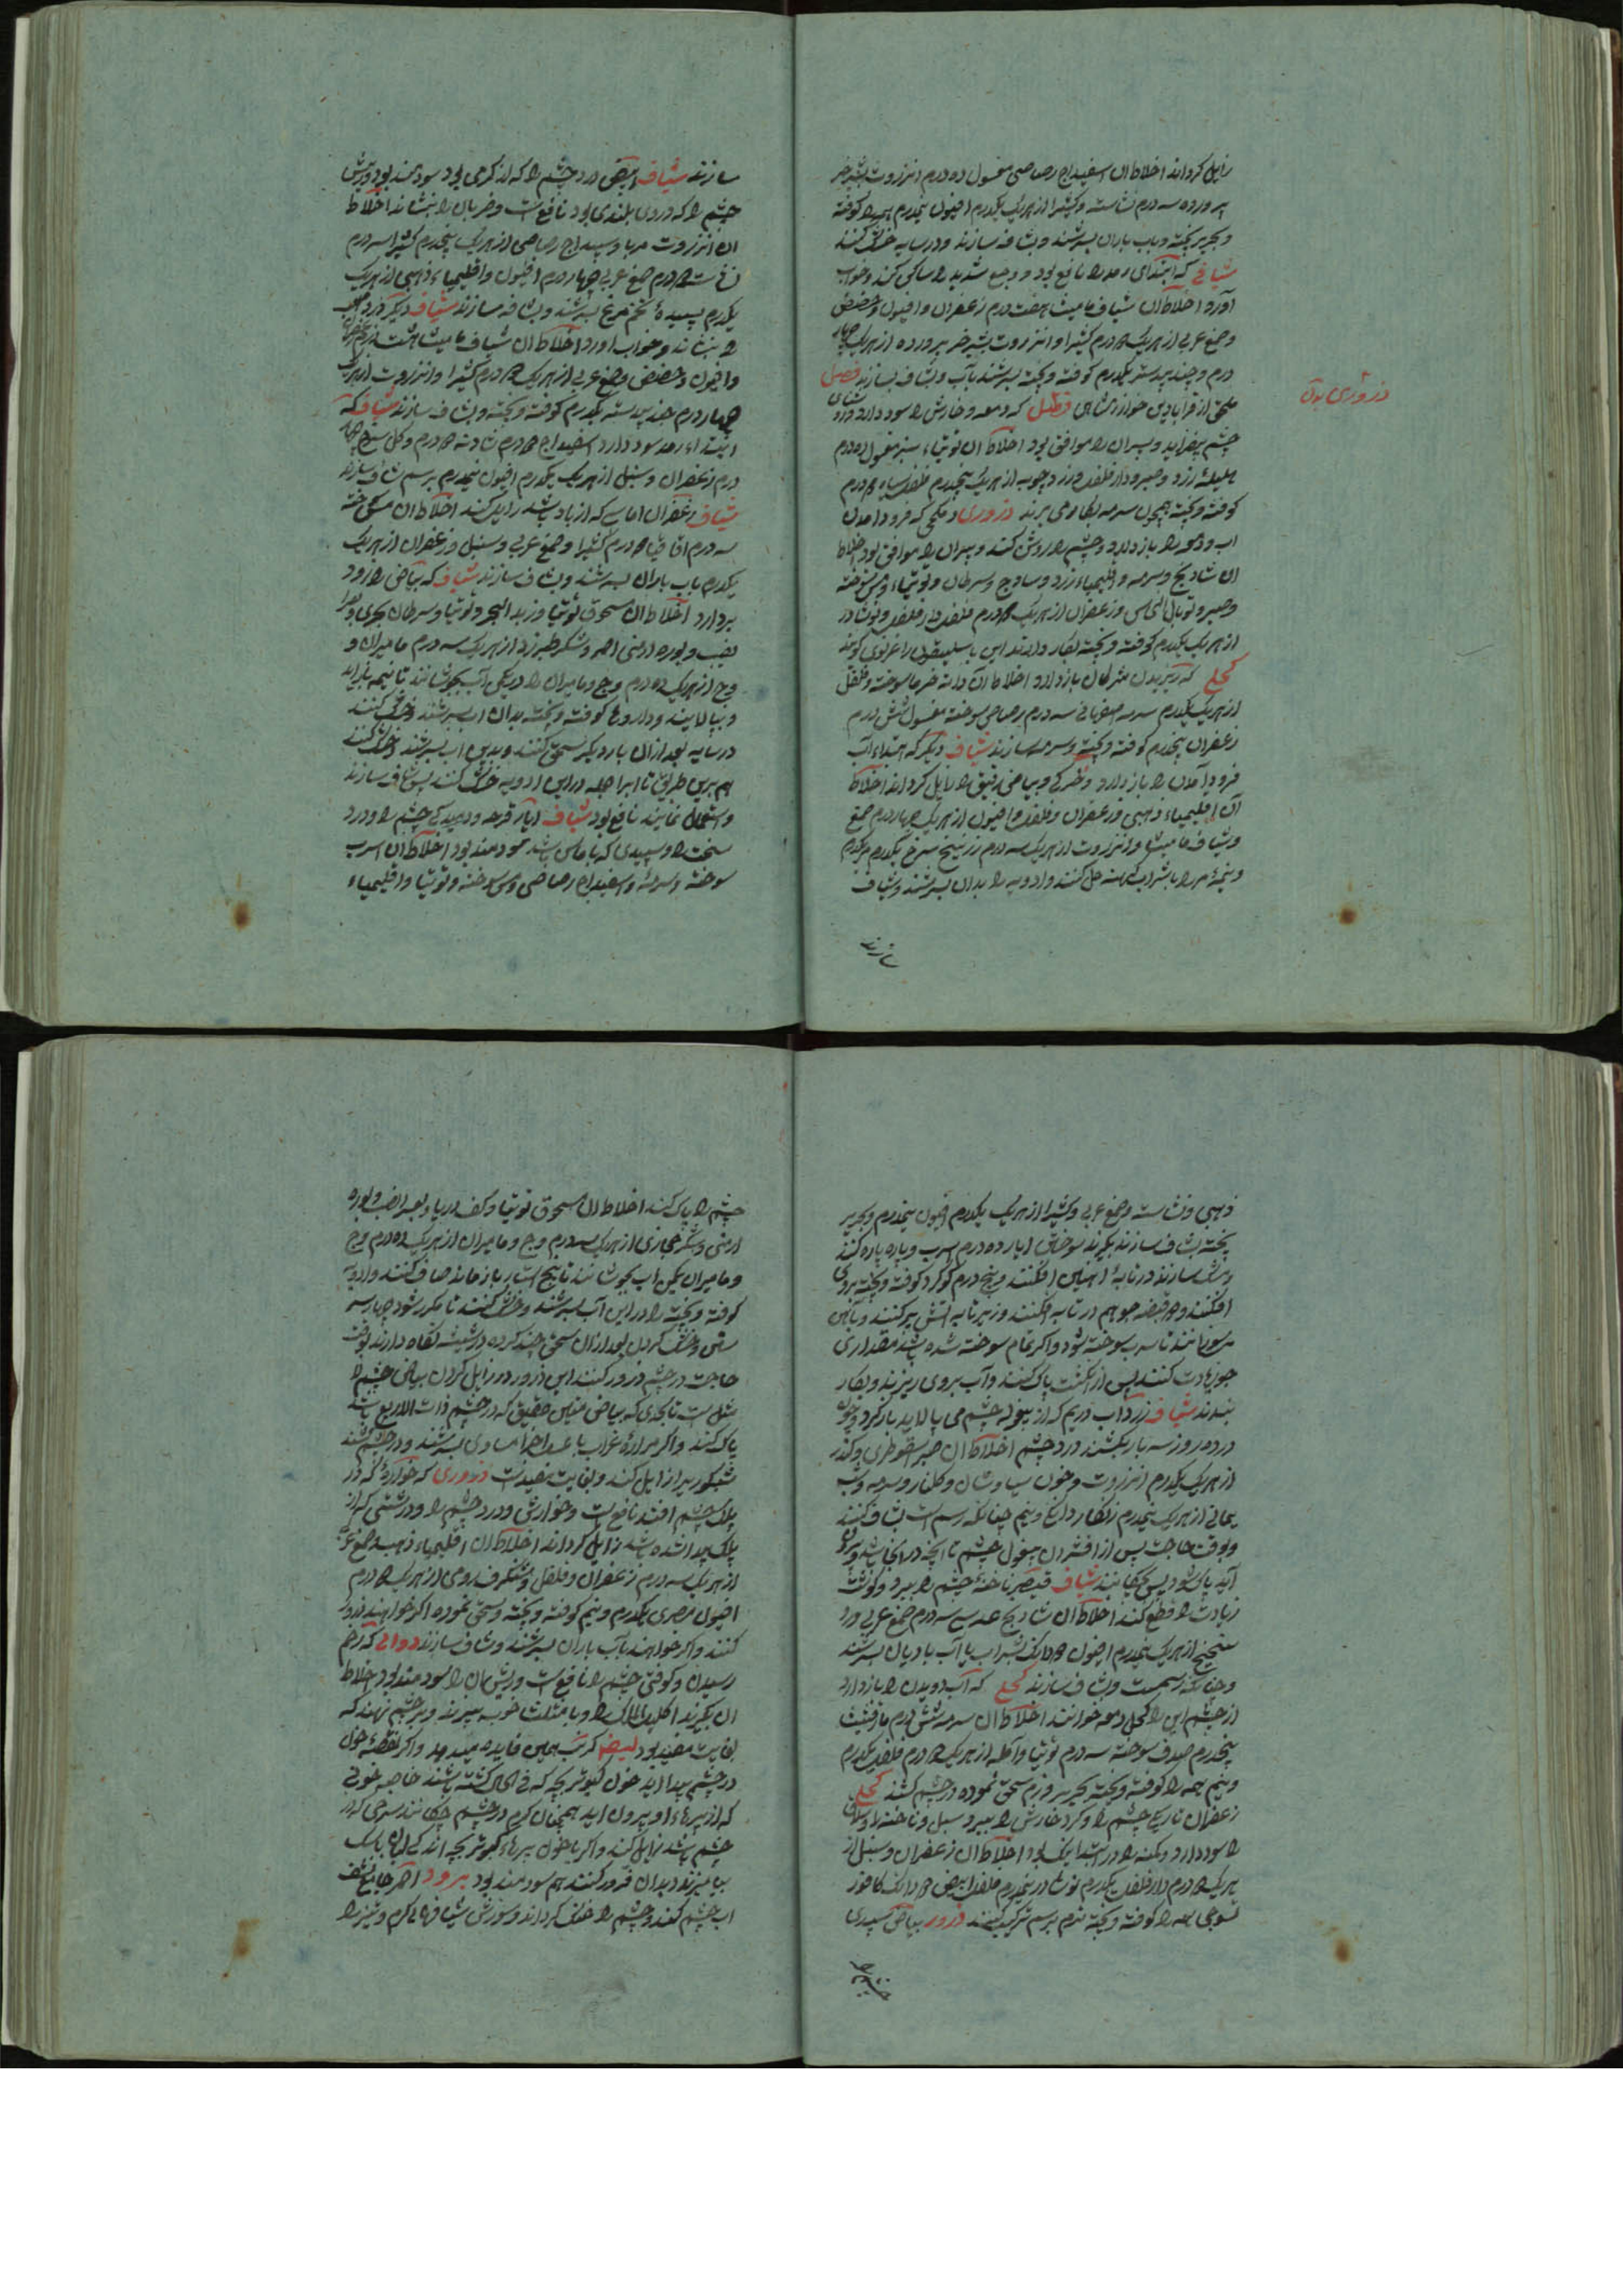 زایل کرداند اخلاط آن اسفیداج رصاصی مغسول ده درم انزروت بشیر خر
پرورده سه درم نشاسته و کتیرا از هر یک یکدرم افیون نیمدرم همه را کوفته
و بحریر بیخته و باب باران بسرشند و شیاف سازند و در سایه خشک کنند
شیافی که ابتدای رمد را نافع بود و وجع شدید را ساکن کند و خواب
آورد اخلاط آن شیاف مامیثا هفت درم زعفران و افیون و حضض
و صمغ عربی از هر یک درم کتیرا و انزروت بشیر خر پرورده از هر یک چهار
درم و جندبیدستر یکدرم کوفته و بیخته بسرشند بآب و شیاف بسازند فصل
ملحق از قرابادین خوارزمشاهی که دمعه و خارش را سود دارد و
چشم بیفزاید و پیران را موافق بود اخلاط آن توتیاء سبز مغسول ده درم
هلیله زرد و صبر و دارفلفل و زردچوبه از هر یک پنجدرم فلفل سیاه درم
کوفته و بیخته همچون سرمه بکار می برند ذروری که فرود آمدن
اب و دمعه را باز دارد و چشم را روشن کند و پیران را موافق بود اخلاط
ان شادنج و سرمه و اقلیمیاء زرد و ساذج و سرطان و توتیاء و مس سوخته
و صبر و توبال النحاس و زعفران از هر یک درم فلفل و دارفلفل و نوشادر
از هر یک یکدرم کوفته و بیخته بکار دارند این باسلیقون را عزیزی گویند
کحلی که ریزیدن مژکان باز دارد اخلاط آن دانه خرما سوخته و فلفل
از هر یک یکدرم سرمه اصفهانی سه درم رصاص سوخته مغسول شش درم
زعفران پنجدرم کوفته و بیخته و سرمه سازند شیاف دیگر که ابتداء آب
فرود آمدن را باز دارد و بیاض رقیق را زایل کرداند اخلاط
آن اقلیمیاء ذهبی و زعفران و فلفل و افیون از هر یک چهار درم صمغ
و شیاف مامیثا و انزروت از هر یک سه درم زرنیخ سرخ یکدرم
را بشراب کهنه حل کنند و ادویه را بدان بسرشند و شیاف
سازند
ذروری بدان
سازند شیاف ابیض درد چشم را که از کرمی بود سودمند بود و ریش
چشم را که در وی بلندی بود نافع است و ضربان را بنشاند اخلاط
ان انزروت مربا و سپیداج رصاصی از هر یک پنجدرم کتیرا سه درم
نشاسته درم صمغ عربی چهار درم افیون و اقلیمیاء ذهبی از هر یک
یکدرم بسپیده تخم مرغ بسرشند و شیاف سازند شیاف دیگر که درد
را بنشاند و خواب اورد اخلاط آن شیاف مامیثا هشت درم
و افیون و حضض و صمغ عربی از هر یک درم کتیرا و انزروت از هر یک
چهار درم جندبیدستر یکدرم کوفته و بیخته و شیاف سازند شیاف که
ابتداء رمد سود دارد اسفیداج درم شادنه درم و کل سرخ چهار
درم زعفران و سنبل از هر یک یکدرم افیون نیمدرم برسم شیاف سازند
شیاف زعفران اماسی که از باد باشد زایل کند اخلاط آن مس سوخته
سه درم اقاقیا درم کتیرا و صمغ عربی و سنبل و زعفران از هر یک
یکدرم باب باران بسرشند و شیاف سازند شیاف که بیاض را زود
بردارد اخلاط آن مسحوق توتیا و زبد البحر و توتیا و سرطان بحری و بعر
ضب و بوره ارمنی احمر و شکر طبرزد از هر یک سه درم مامیران و
وج از هر یک ده درم وج و مامیران را در یکمن آب بجوشانند تا نیمه باز آید
و بپالایند و داروها کوفته و بیخته بدان اب بسرشند و خشک کنند
در سایه بعد ازان بار دیگر سحق کنند و بدین اب بسرشند و خشک کنند
هم برین طریق تا ابراجمله درین ادویه خشک کنند پس شیاف سازند
و استعمال نمایند نافع بود شیاف ابار قرحه و دمیدکی چشم را و درد
سخت را و سپیدی که با ماس باشد سودمند بود اخلاط آن اسرب
سوخته و سرمه و اسفیداج رصاصی و مس سوخته و توتیا و اقلیمیاء
ذهبی و نشاسته و صمغ عربی و کتیرا از هر یک یکدرم افیون نیمدرم و بحریر
بیخته شیاف سازند بکیرند سوختن ابار ده درم اسرب و پاره پاره کنند
و تنک سازند در تابه آهنین افکنند و پنج درم کوکرد کوفته و بیخته بروی
افکنند و قبضه جو هم در تابه افکنند و زیر تابه اتش بر کنند و بآهن
می شورانند تا سرب سوخته شود و اگر تمام سوخته نشده باشد مقداری
جو زیادت کنند پس از انگشت پاک کنند و آب بروی ریزند و بکار
بندند شیاف زرد آب و ریم که از بیغوله چشم می پالاید باز کیرد
در ده روز سه بار بکشند در چشم اخلاط آن صبر سقوطری و کندر
از هر یک یکدرم انزروت و خون سیاوشان و کلنار و سرمه و شب
یمانی از هر یک نیمدرم زنگار دانگ و نیم چنانکه رسم است شیاف کنند
و بوقت حاجت پس از افشردن بیغوله چشم تا انچه در انجا باشد بیرون
آید پاک شود پس بچکانند شیاف قیصر ناخنه چشم را ببرد و کوشت
زیادت را قطع کند اخلاط آن شادنج عدسی سه درم صمغ عربی و
از هر یک نیمدرم افیون دانک بشراب یا آب بادیان بسرشند
و چنانکه رسمست شیاف سازند کحلی که آب دویدن را باز دارد
از چشم این را کحل دمعه خوانند اخلاط آن سرمه شش درم مارقشیثا
پنجدرم صدف سوخته سه درم توتیا و آمله از هر یک درم فلفل یکدرم
و نیم همه را کوفته و بیخته بحریر و نرم سحق نموده در چشم کشند کحلی
زعفران تاریکی چشم را و کرد خارش را ببرد و سبل و ناخنه و
را سود دارد و دمعه را در ابتدا نیک بود اخلاط آن زعفران و سنبل از
هر یک درم دارفلفل یکدرم نوشادر نیمدرم فلفل ابیض دانک کافور
تسوجی همه را کوفته و بیخته نرم برسم ترکیب کنند ذرور بیاض سپیدی
چشم را پاک کند اخلاط آن مسحوق توتیا و کف دریا و بعر الضب و بوره
ارمنی و شکر حجازی از هر یک سه درم وج و مامیران از هر یک ده درم وج
و مامیران یکمن اب بجوشانند تا پنج استار باز ماند صاف کنند و ادویه
کوفته و بیخته را در این آب بسرشند و خشک کنند تا مکرر شود چهار
و خشک کردن بعد ازان سحق چند کرده در شیشه نگاه دارند بوقت
حاجت در چشم ذرور کنند این ذرور در زایل کردن بیاض چشم را
مثل است تا بحدی که بیاض عتیق که در چشم ذات الاربع باشد
پاک کند و اگر مراره غراب با عسل اجزا مساوی بسرشند و در چشم کشند
شبکوری را زایل کند و بغایت مفیدست ذروری که در
پلک چشم افتد نافع است و خارش و درد چشم را و درشتی که از
پلک پیدا شده باشد زایل کرداند اخلاط آن اقلیمیاء ذهب و صمغ عربی
از هر یک سه درم زعفران و فلفل و شنکرف رومی از هر یک درم
افیون مصری یکدرم و نیم کوفته و بیخته و سحق نموده اگر خواهند ذرور
کنند و اگر خواهند بآب باران بسرشند و شیاف سازند دوائی که زخم
رسیدن و کوفتن چشم را نافع است و ریش ان را سودمند بود اخلاط
ان بکیرند اکلیل الملک را و با مثلث خوب بپزند و بر چشم نهند که
بغایت مفید بود ایضا کرنب همین فایده میدهد و اگر نقطه خون
در چشم پیدا اید خون کبوتر بچه که فی الحال کشته باشند خاصه خونی
که از پرهاء او بیرون اید همچنان کرم در چشم چکانند سرخی که در
چشم باشد زایل کند و اگر با خون پرهاء کبوتر بچه اندکی
بیامیزند و بدان ذرور کنند هم سودمند بود برود احمر
اب چشم کنند و چشم را خنک کرداند و سوزش شیافهاء کرم و تیز را